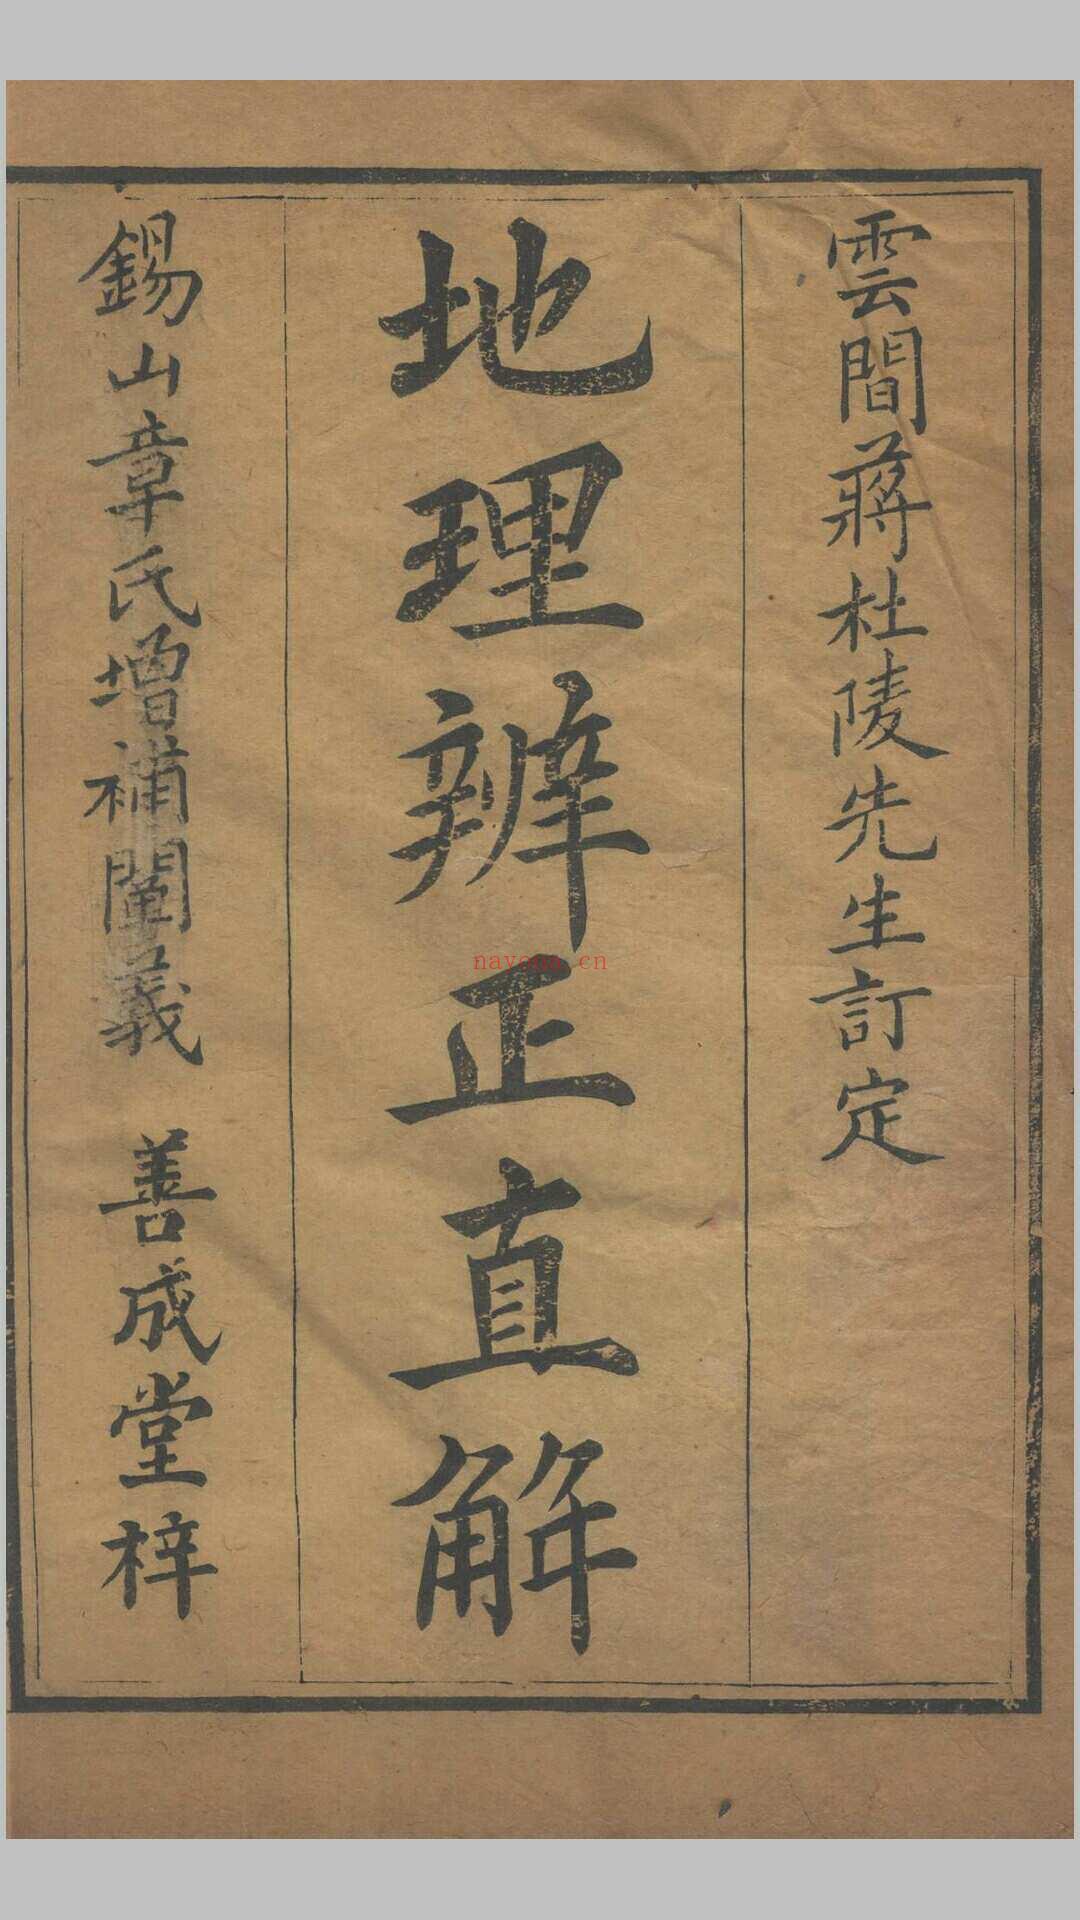 雲間蔣杜陵先生訂定
地理辨正直解
錫山章氏增補闡義 善成堂梓
nayona.cn